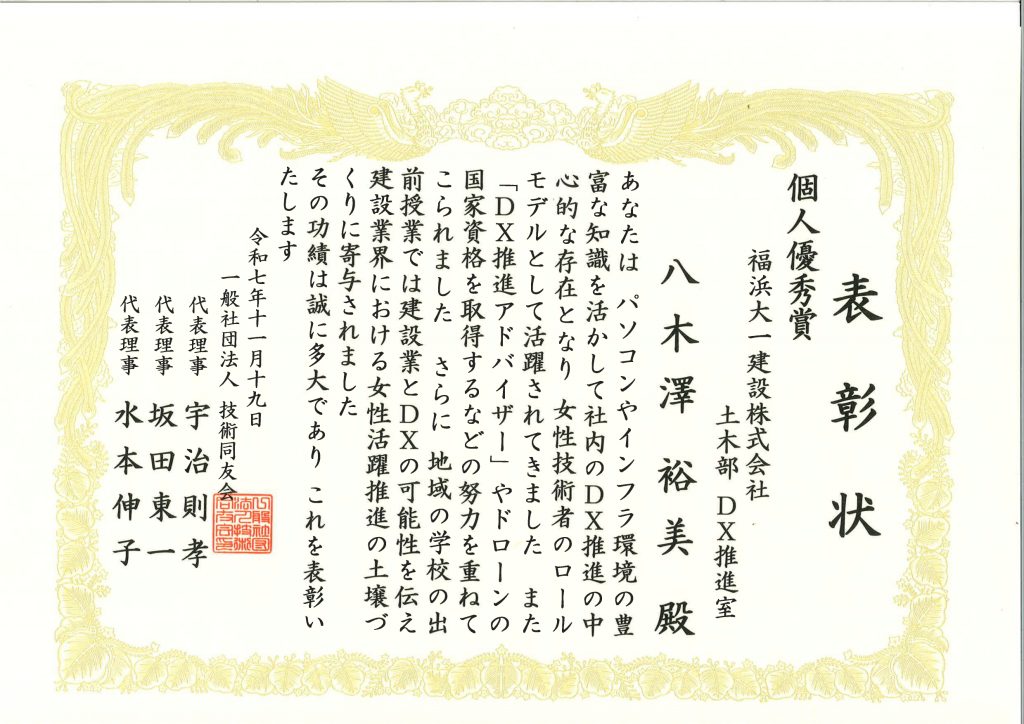 表彰状
個人優秀賞
福浜大一建設株式会社
土木部 DX推進室
八木澤裕美 殿
あなたは パソコンやインフラ環境の豊
富な知識を活かして社内のDX推進の中
心的な存在となり 女性技術者のロール
モデルとして活躍されてきました また
「DX推進アドバイザー」やドローンの
国家資格を取得するなどの努力を重ねて
こられました さらに 地域の学校の出
前授業では建設業とDXの可能性を伝え
建設業界における女性活躍推進の土壌づ
くりに寄与されました
その功績は誠に多大であり これを表彰い
たします
令和七年十一月十九日
一般社団法人 技術同友会
代表理事 宇治則孝
代表理事 坂田東一
代表理事 水本伸子